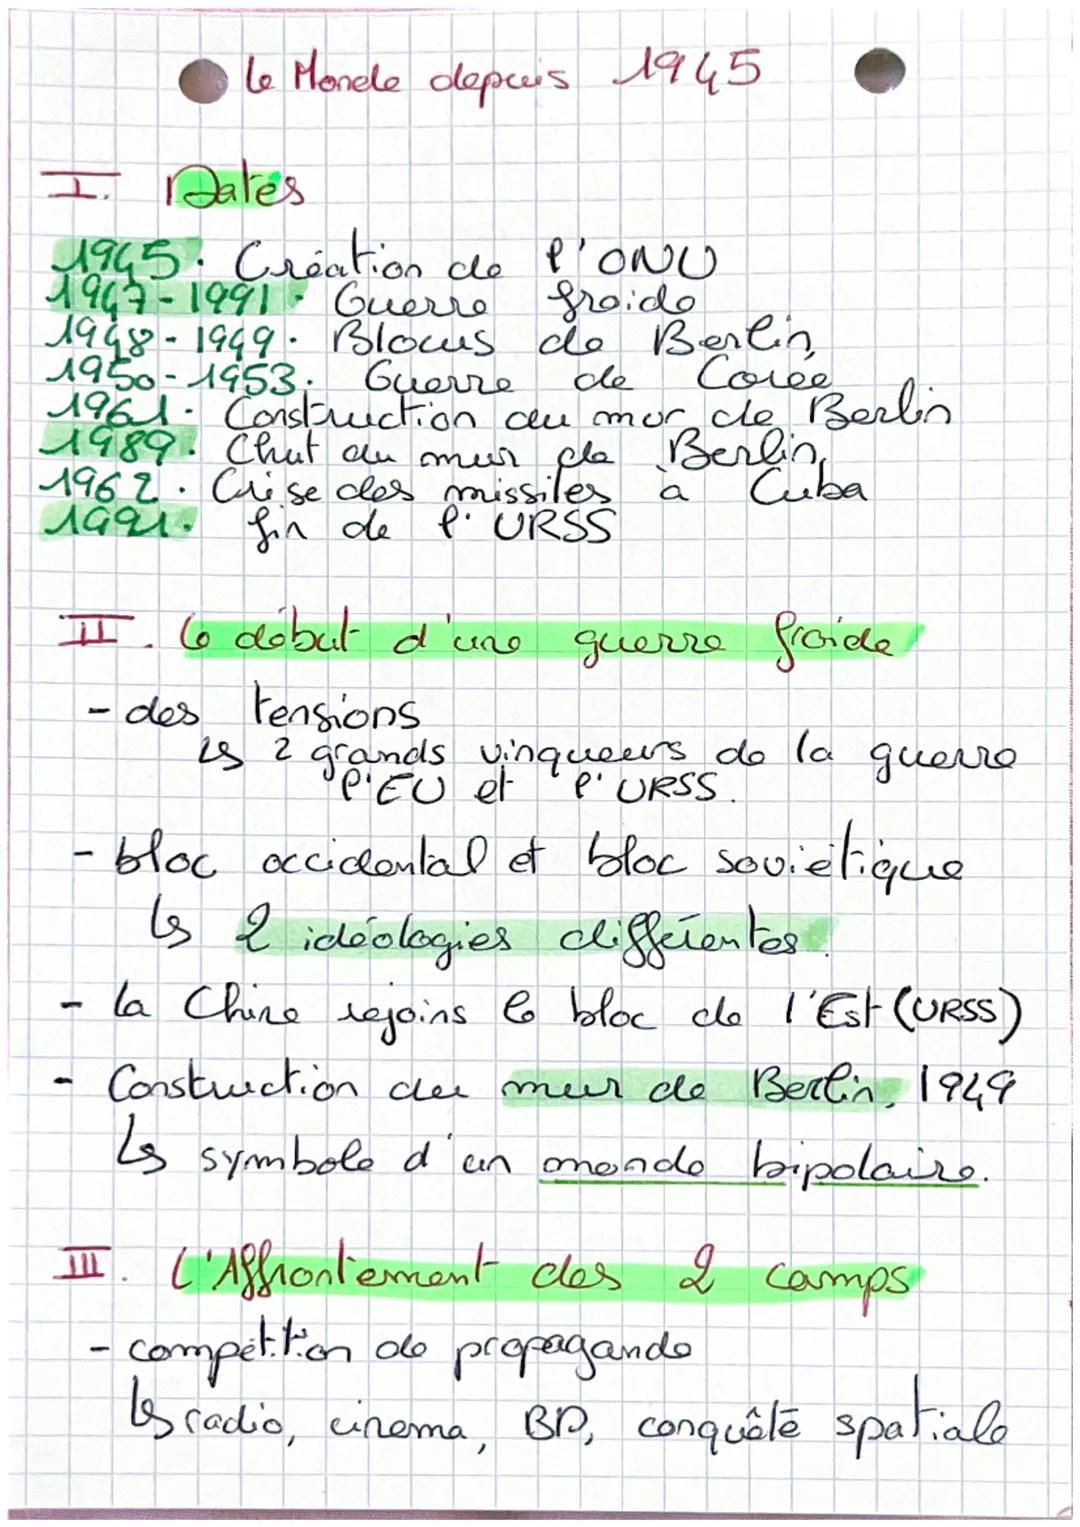 Le Monde depuis 1945
I. Dates
1945. Création de l'ONU
1947-1991. Guerre froide
1948-1949. Blocus de Berlin,
1950-1953. Guerre de Corée
1961. Construction du mur de Berlin
1989. Chut du mur de Berlin,
1962. Crise des missiles à Cuba
1991. fin de l'URSS
II. Le début d'une guerre froide
- des tensions
↳ 2 grands vinqueurs de la guerre
l'EU et l'URSS.
- bloc occidental et bloc soviétique
↳ 2 idéologies différentes.
- la Chine rejoins le bloc de l'Est (URSS)
- Construction du mur de Berlin, 1949
↳ symbole d'un monde bipolaire.
III. L'Affrontement des 2 camps
- compétition de propagande
↳ radio, cinema, BD, conquête spatiale